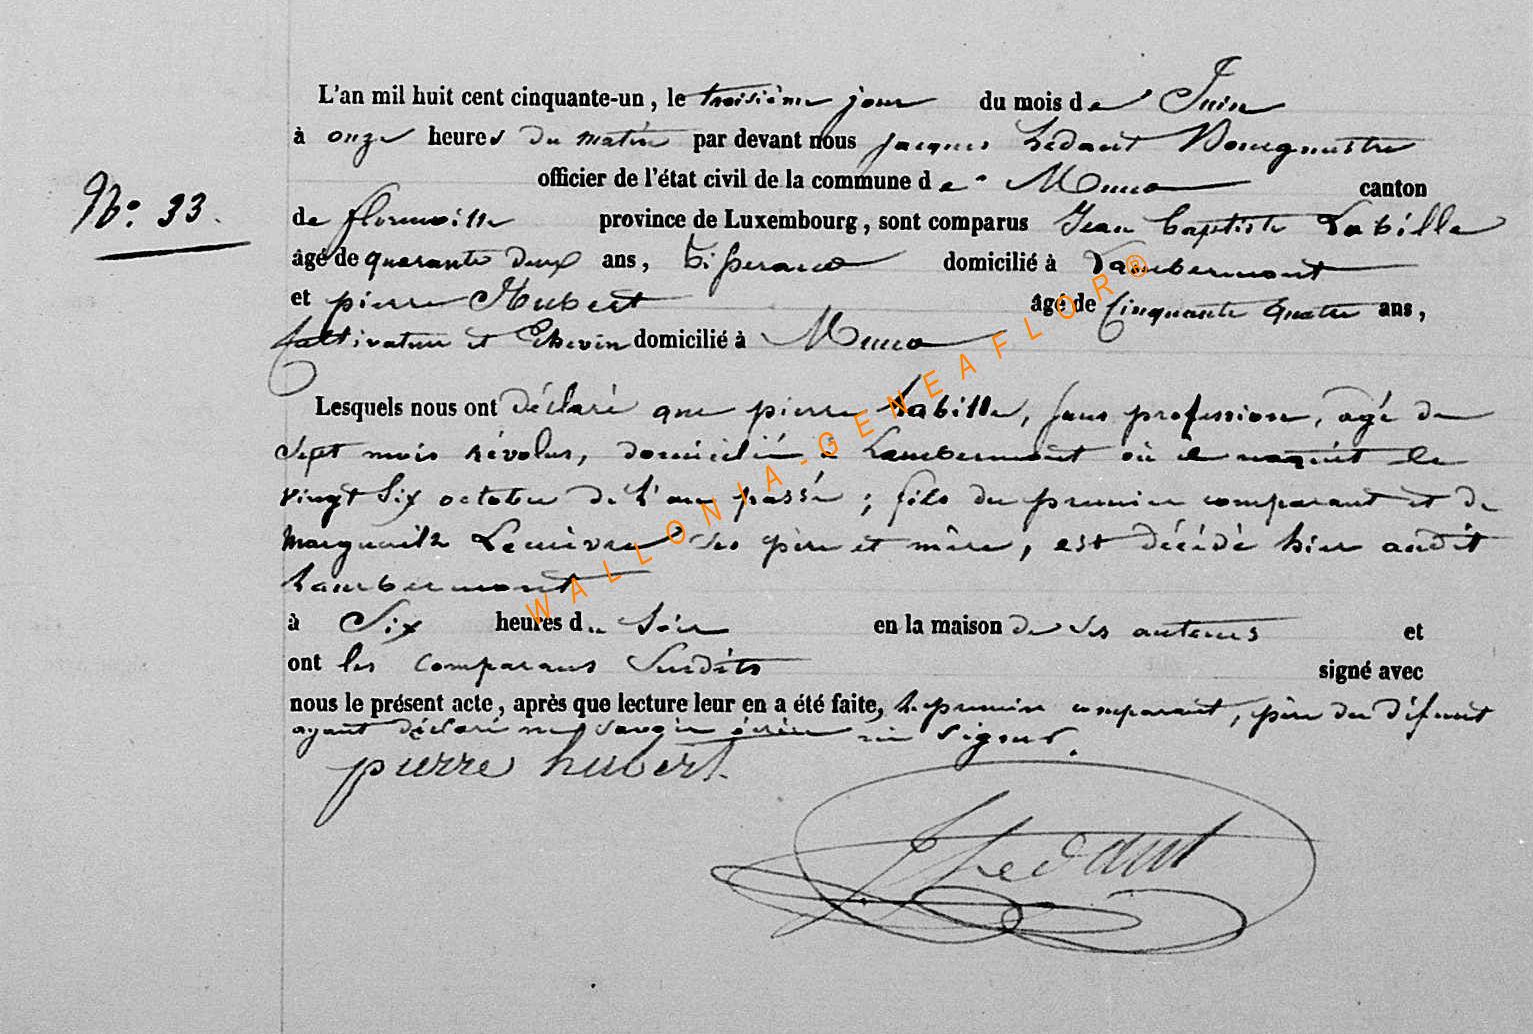 L'an mil huit cent cinquante-un, le troisième jour du mois de Juin
à onze heures du matin par devant nous Jacques Hédant Bourgmestre
officier de l'état civil de la commune de Muno canton
N°. 33.
de florenville province de Luxembourg, sont comparus Jean Baptiste Labille
âgé de quarante deux ans, tisserand domicilié à Lambermont
et pierre Hubert âgé de Cinquante quatre ans,
Cultivateur et Echevin domicilié à Muno
Lesquels nous ont déclaré que pierre Labille, sans profession, âgé de
sept mois révolus, domicilié à Lambermont où il naquit le
vingt six octobre de l'an passé; fils du premier comparant et de
Marguerite Lemièvre ses père et mère, est décédé hier audit
Lambermont
à Six heures du Soir en la maison de ses auteurs et
ont les comparans Susdits signé avec
nous le présent acte, après que lecture leur en a été faite, le premier comparant, père du défunt
ayant déclaré ne savoir écrire ni signer.
pierre hubert.
J Hedant
WALLONIA-GENEAFLOR®